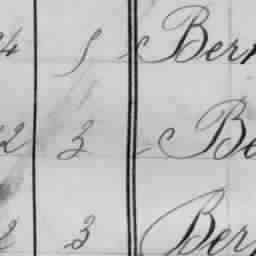 4 1 Ber
2 3 Be
2 3 Ber